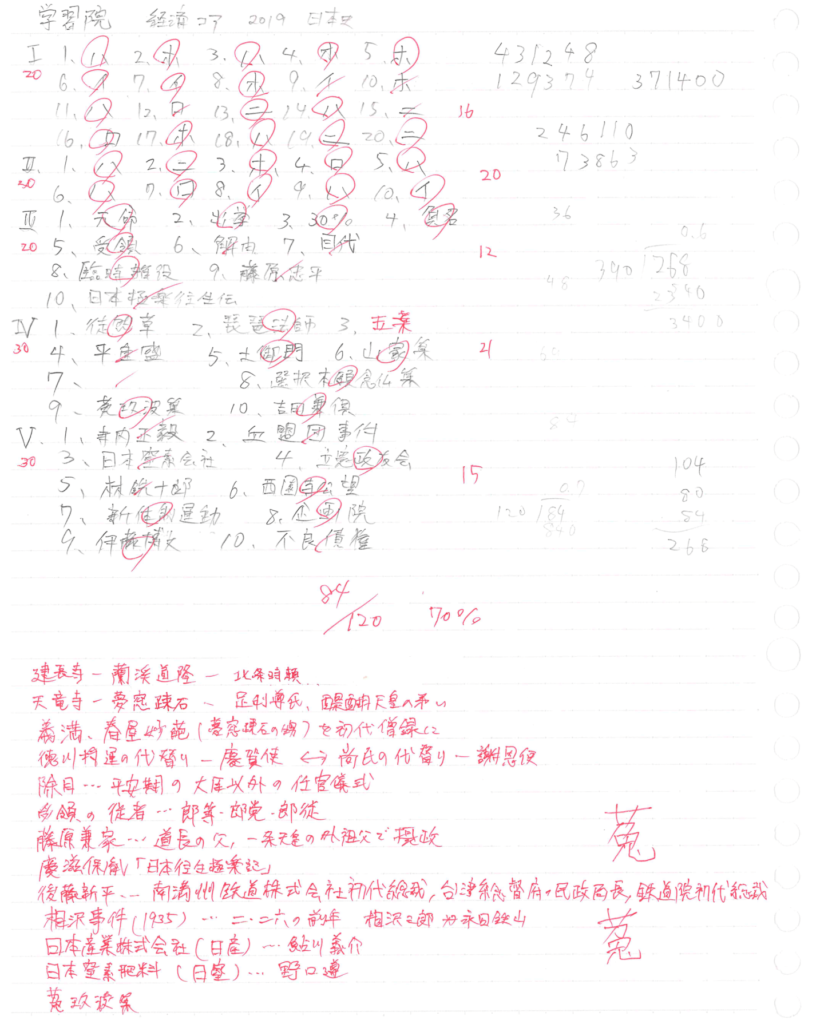 学習院 経済コア 2019 日本史
I 1、ハ 2、ホ 3、ハ 4、ホ 5、ホ 431248
20 6、イ 7、イ 8、ホ 9、イ 10、ホ 129374 371400
11、ハ 12、ロ 13、ニ 14、ハ 15、ニ 16
16、ロ 17、ホ 18、ハ 19、ニ 20、ニ 246110
II、1、ハ 2、ニ 3、ホ 4、ロ 5、ハ 20 73863
6、ハ 7、ロ 8、イ 9、ハ 10、イ
III 1、天師 2、出挙 3、30% 4、負名 36
20 5、受領 6、解由 7、目代 12 0.6
8、臨時雑役 9、藤原忠平 48 390 268
10、日本極楽往生伝 2340
3400
IV 1、徒然草 2、琵琶法師 3、五楽
30 4、平定盛 5、土御門 6、山家集 21
7、 8、選択本願念仏集
9、菟玖波集 10、吉田兼倶 84
V、1、寺内正毅 2、血盟団事件
30 3、日本窒素会社 4、立憲政友会 15 104
5、林銑十郎 6、西園寺公望 0.7 80
7、新体制運動 8、企画院 120 184 84
840
9、伊藤博文 10、不良債権 268
84/120 70%
建長寺ー蘭渓道隆ー北条時頼
天竜寺ー夢窓疎石ー足利尊氏、後醍醐天皇の弔い
義満、春屋妙葩(夢窓疎石の甥)を初代僧録に
徳川将軍の代替りー慶賀使 ⟷ 尚氏の代替りー謝恩使
除目…平安期の大臣以外の任官儀式
受領の従者…郎等・郎党・郎従
藤原兼家…道長の父,一条天皇の外祖父で摂政
慶滋保胤「日本往生極楽記」
後藤新平…南満州鉄道株式会社初代総裁,台湾総督府の民政局長,鉄道院初代総裁
相沢事件(1935)…二・二六の前年 相沢三郎が永田鉄山
日本産業株式会社(日産)…鮎川義介
日本窒素肥料(日窒)…野口遵
菟玖波集
菟
菟